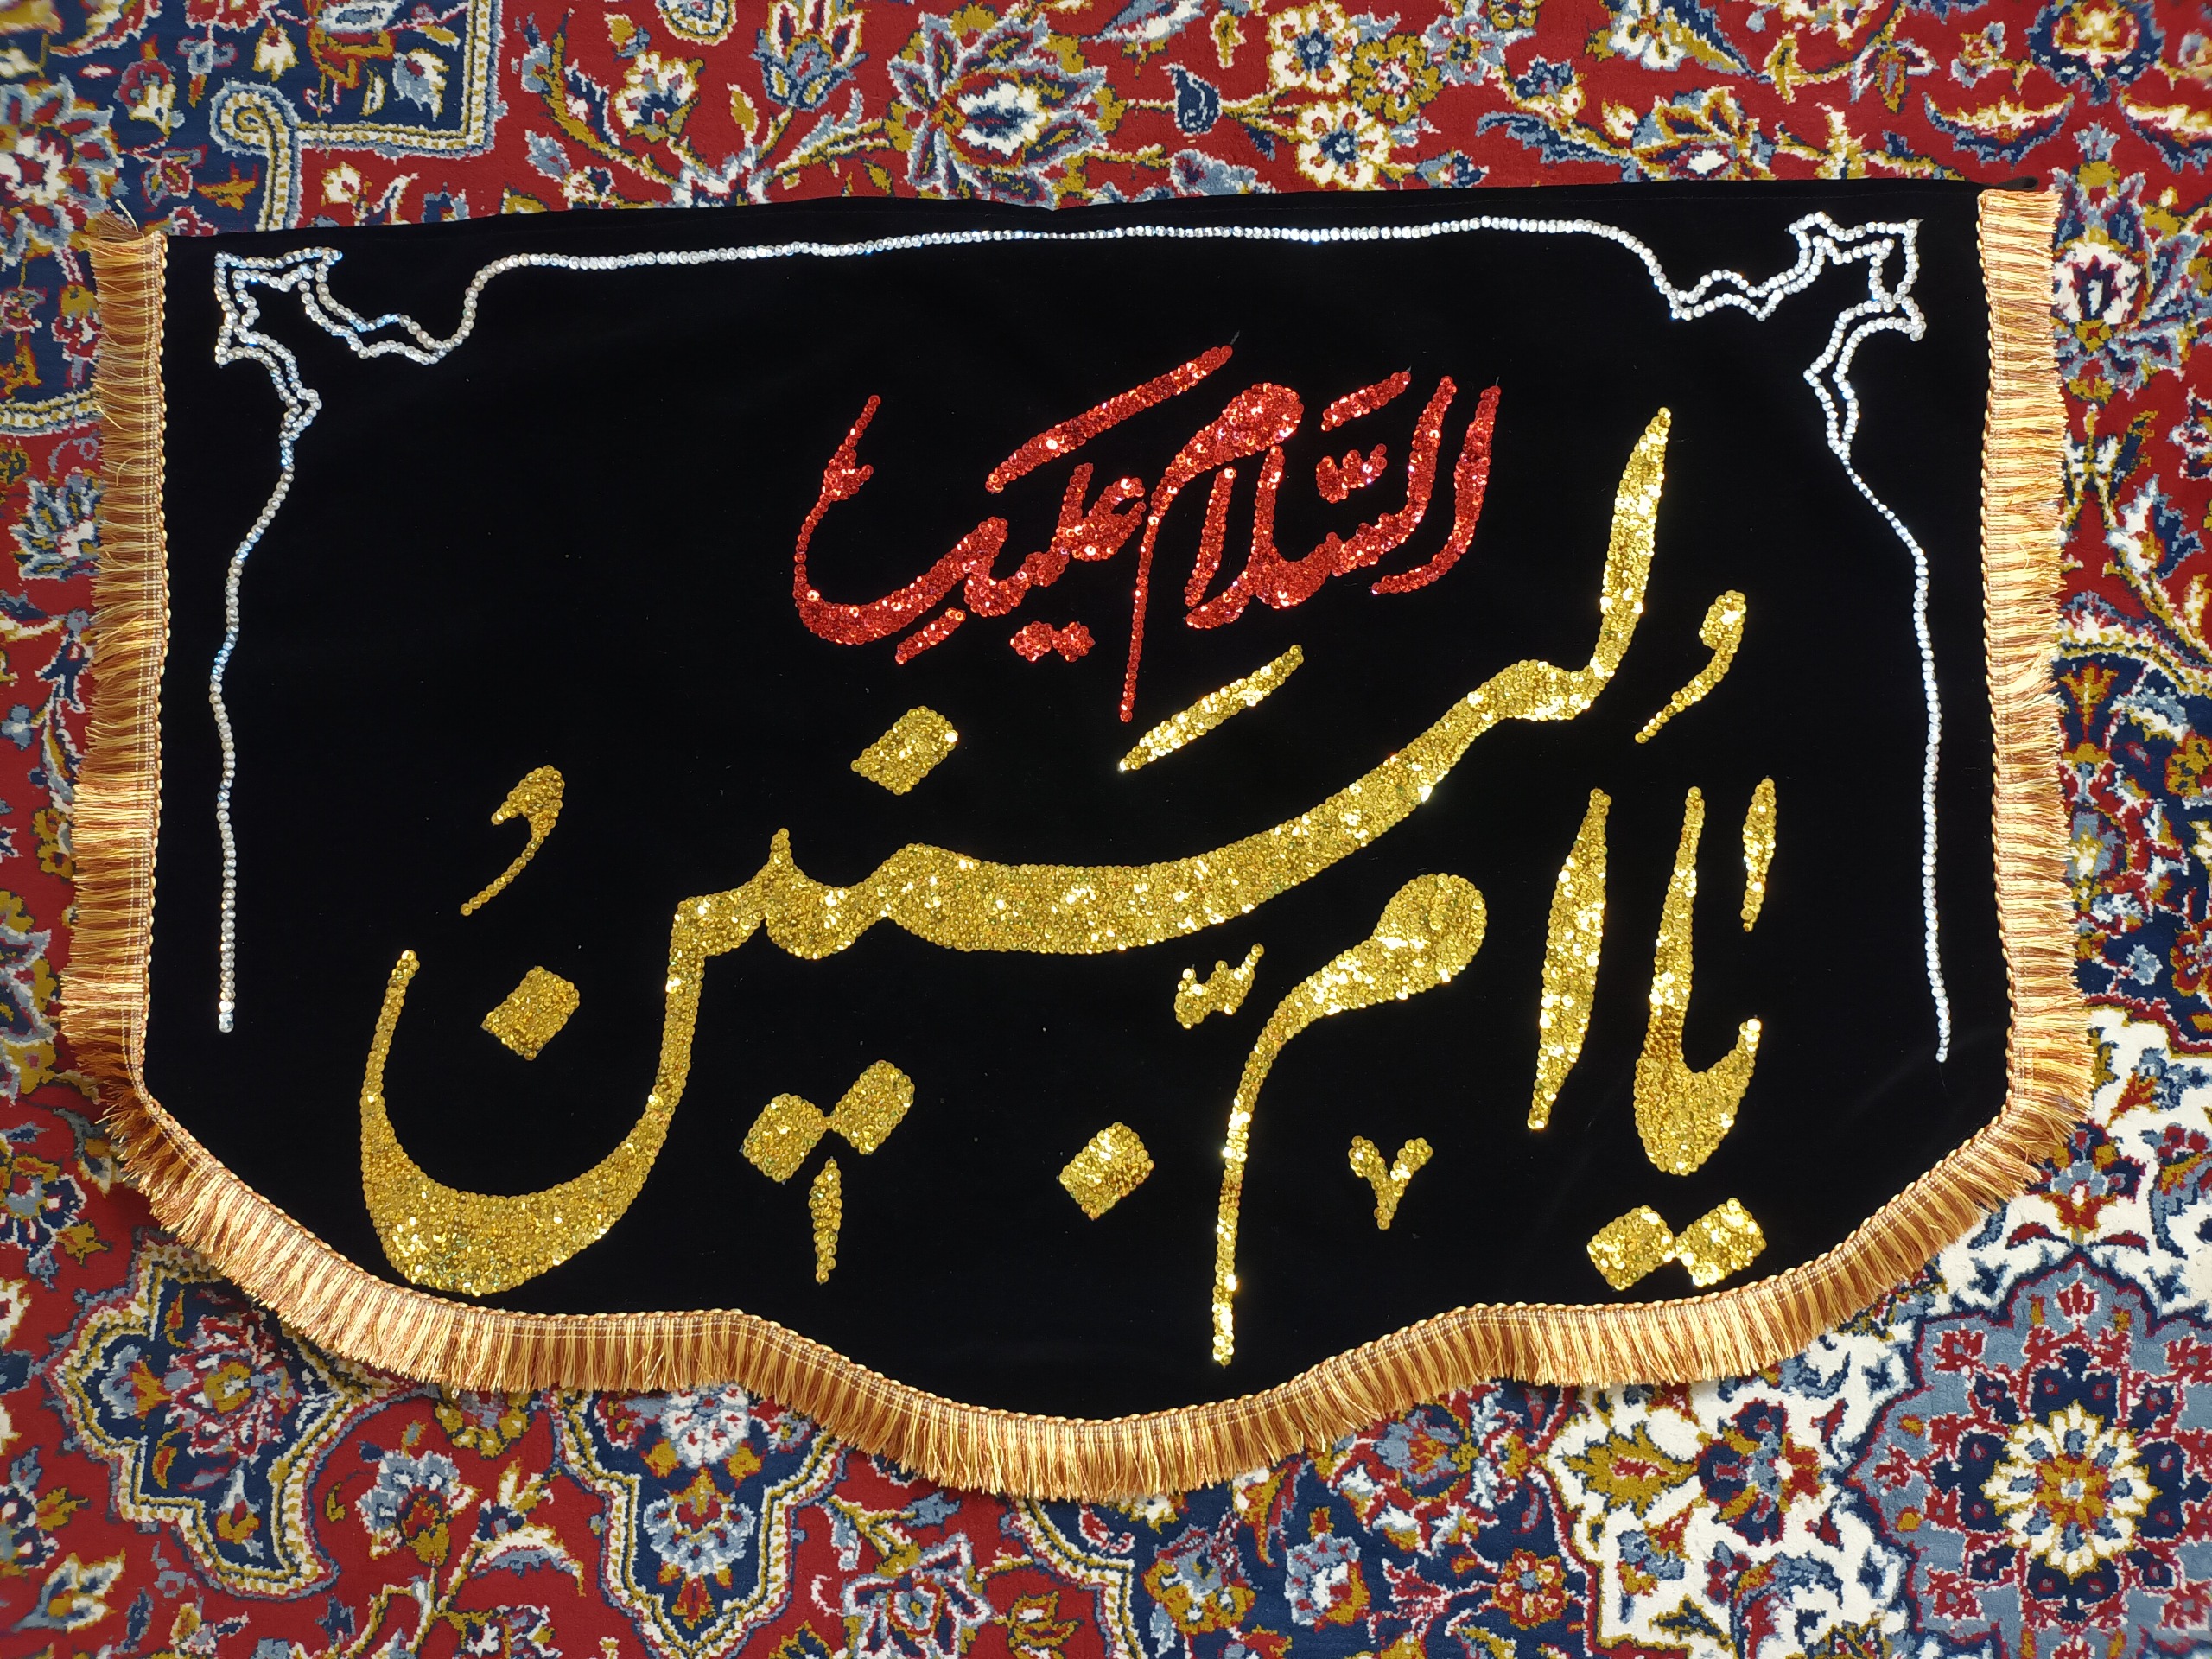 السّلام علیک
یا امّ البنین